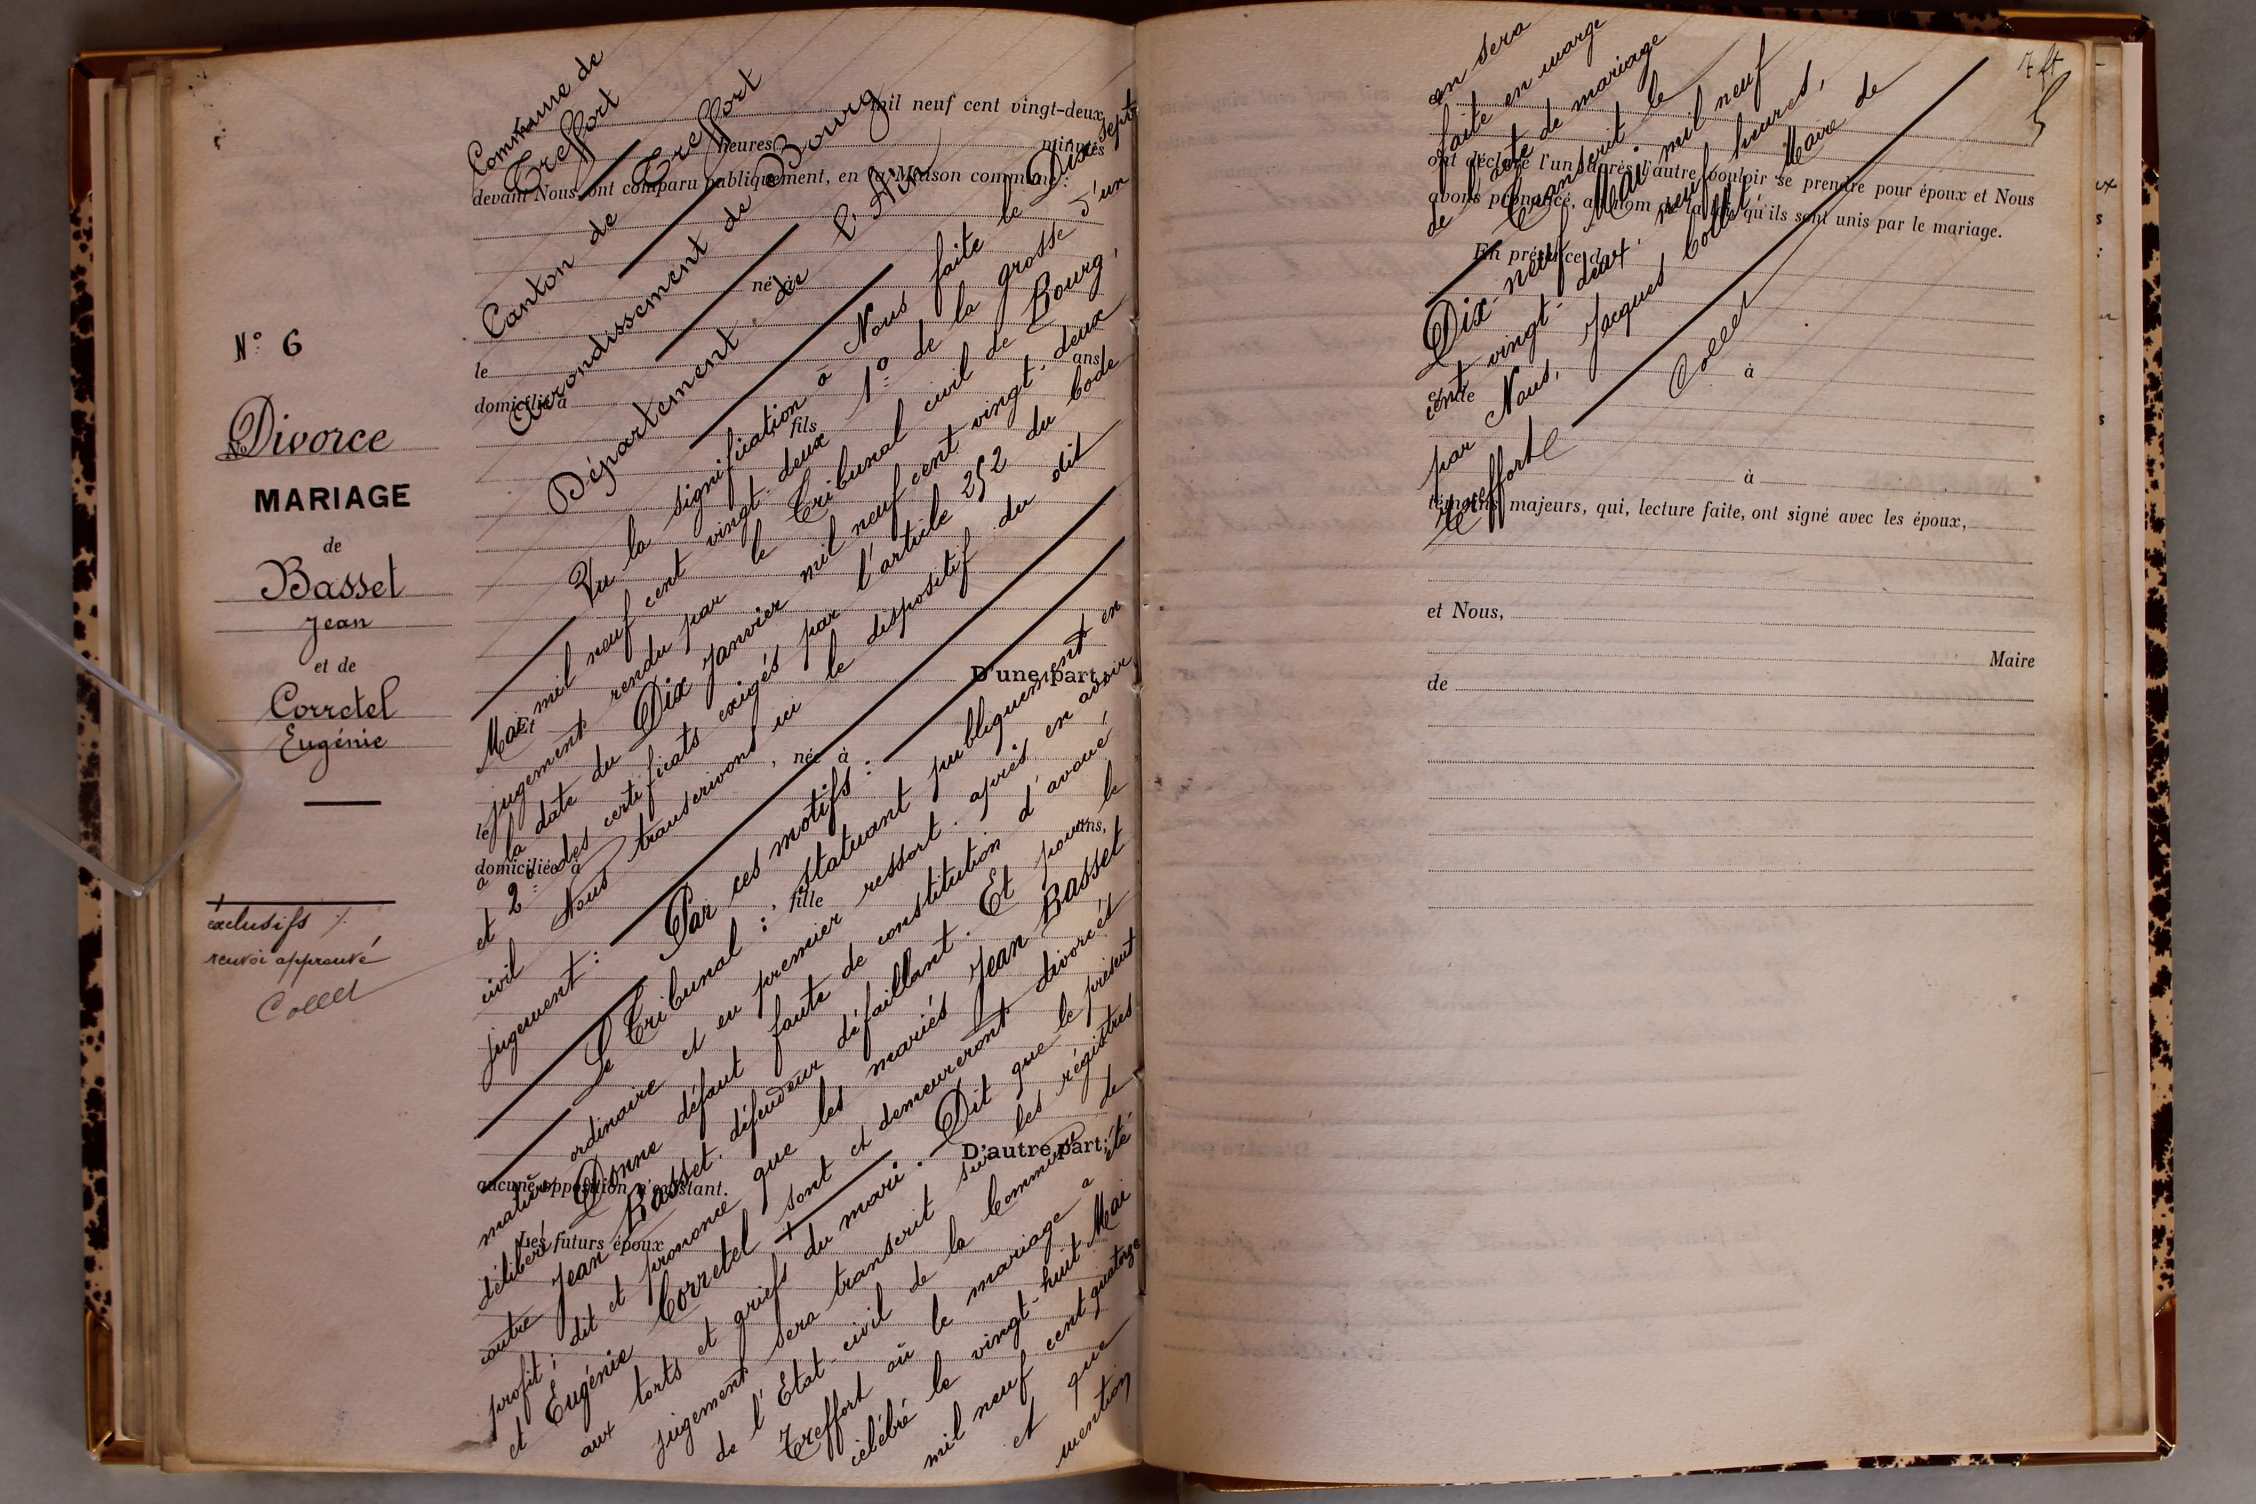 N° 6
Divorce
MARIAGE
de
Basset
Jean
et de
Corretel
Eugénie
exclusifs
renvoi approuvé
Collet
mil neuf cent vingt-deux
heures minutes
devant Nous ont comparu publiquement, en la Maison commune :
né à
le ans
domicilié à
fils
D'une part.
, née à
le ans,
domiciliée à
fille
D'autre part;
aucune opposition n'existant.
Les futurs époux
Commune de
Treffort
Canton de Treffort
Arrondissement de Bourg
Département de l'Ain
Vu la signification à Nous faite le Dix sept
Mai mil neuf cent vingt-deux 1° de la grosse d'un
jugement rendu par le Tribunal civil de Bourg,
à la date du Dix Janvier mil neuf cent vingt-deux
et 2° des certificats exigés par l'article 252 du Code
civil Nous transcrivons ici le dispositif du dit
jugement :
Par ces motifs :
Le Tribunal : statuant publiquement en
matière ordinaire et en premier ressort. après en avoir
délibéré Donne défaut faute de constitution d'avoué,
contre Jean Basset. défendeur défaillant. Et pour le
profit ; dit et prononce que les mariés Jean Basset
et Eugénie Corretel sont et demeureront divorcés
aux torts et griefs + du mari. Dit que le présent
jugement sera transcrit sur les régistres
de l'Etat-civil de la Commune de
Treffort où le mariage a été
célébré le vingt-huit Mai
mil neuf cent quatorze
et que
mention
7 ft
en sera
faite en marge
de l'acte de mariage
Transcrit le
Dix-neuf Mai mil neuf
cent vingt-deux. neuf heures,
par Nous, Jacques Collet, Maire de
Treffort
Collet
ont déclaré l'un après l'autre vouloir se prendre pour époux et Nous
avons prononcé, au nom de la loi, qu'ils sont unis par le mariage.
En présence de
à
et de
à
témoins majeurs, qui, lecture faite, ont signé avec les époux,
et Nous,
Maire
de